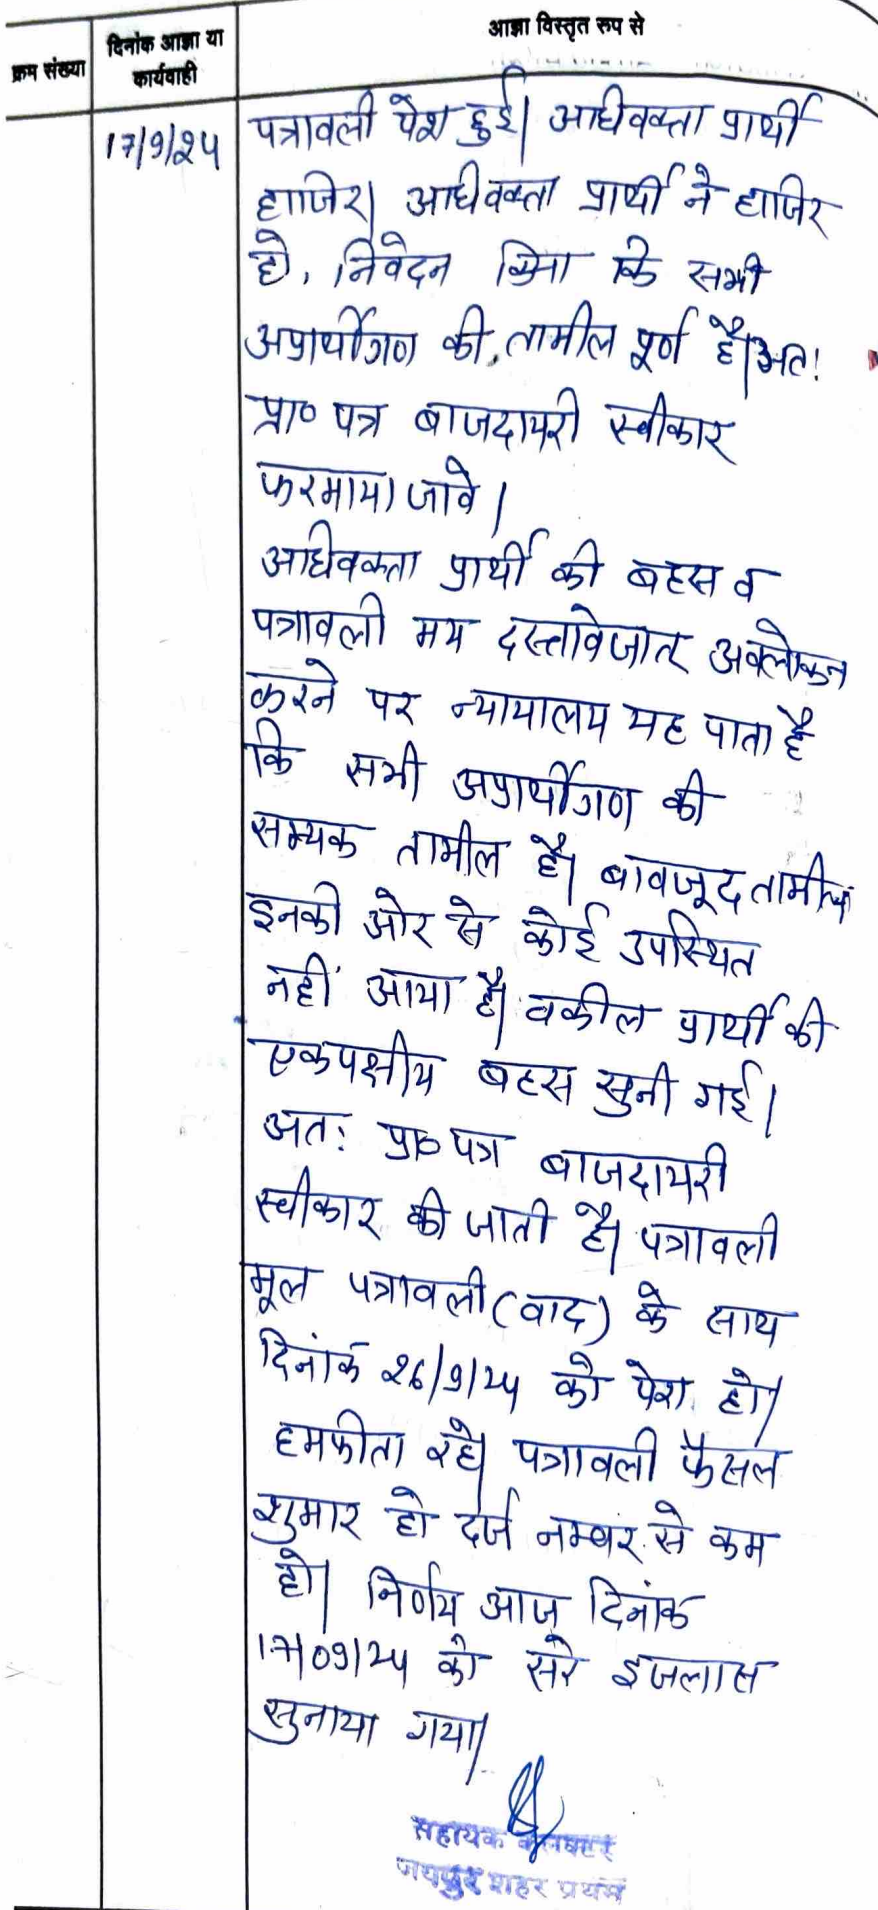 क्रम संख्या
दिनांक आज्ञा या
कार्यवाही
आज्ञा विस्तृत रूप से
17/9/24
पत्रावली पेश हुई। अधिवक्ता प्रार्थी
हाजिर। अधिवक्ता प्रार्थी ने हाजिर
हो, निवेदन किया कि सभी
अप्रार्थीगण की तामील पूर्ण है। अतः
प्रा० पत्र बाजदायरी स्वीकार
फरमाया जावे।
अधिवक्ता प्रार्थी की बहस व
पत्रावली मय दस्तावेजात अवलोकन
करने पर न्यायालय यह पाता है
कि सभी अप्रार्थीगण की
सम्यक तामील है। बावजूद तामील
इनकी ओर से कोई उपस्थित
नहीं आया है। वकील प्रार्थी की
एकपक्षीय बहस सुनी गई।
अतः प्रा० पत्र बाजदायरी
स्वीकार की जाती है। पत्रावली
मूल पत्रावली (वाद) के साथ
दिनांक 26/9/24 को पेश हो।
हमफीता रहे। पत्रावली फैसल
शुमार हो दर्ज नम्बर से कम
हो। निर्णय आज दिनांक
17/09/24 को सरे इजलास
सुनाया गया।
सहायक कलक्टर
जयपुर शहर प्रथम